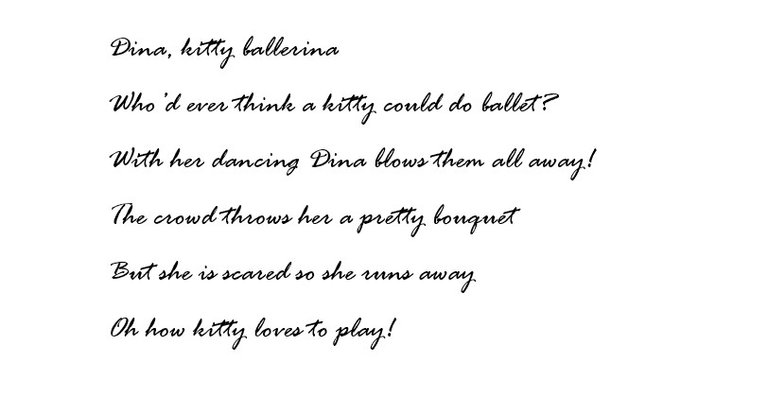 Dina, kitty ballerina
Who'd ever think a kitty could do ballet?
With her dancing Dina blows them all away!
The crowd throws her a pretty bouquet
But she is scared so she runs away
Oh how kitty loves to play!